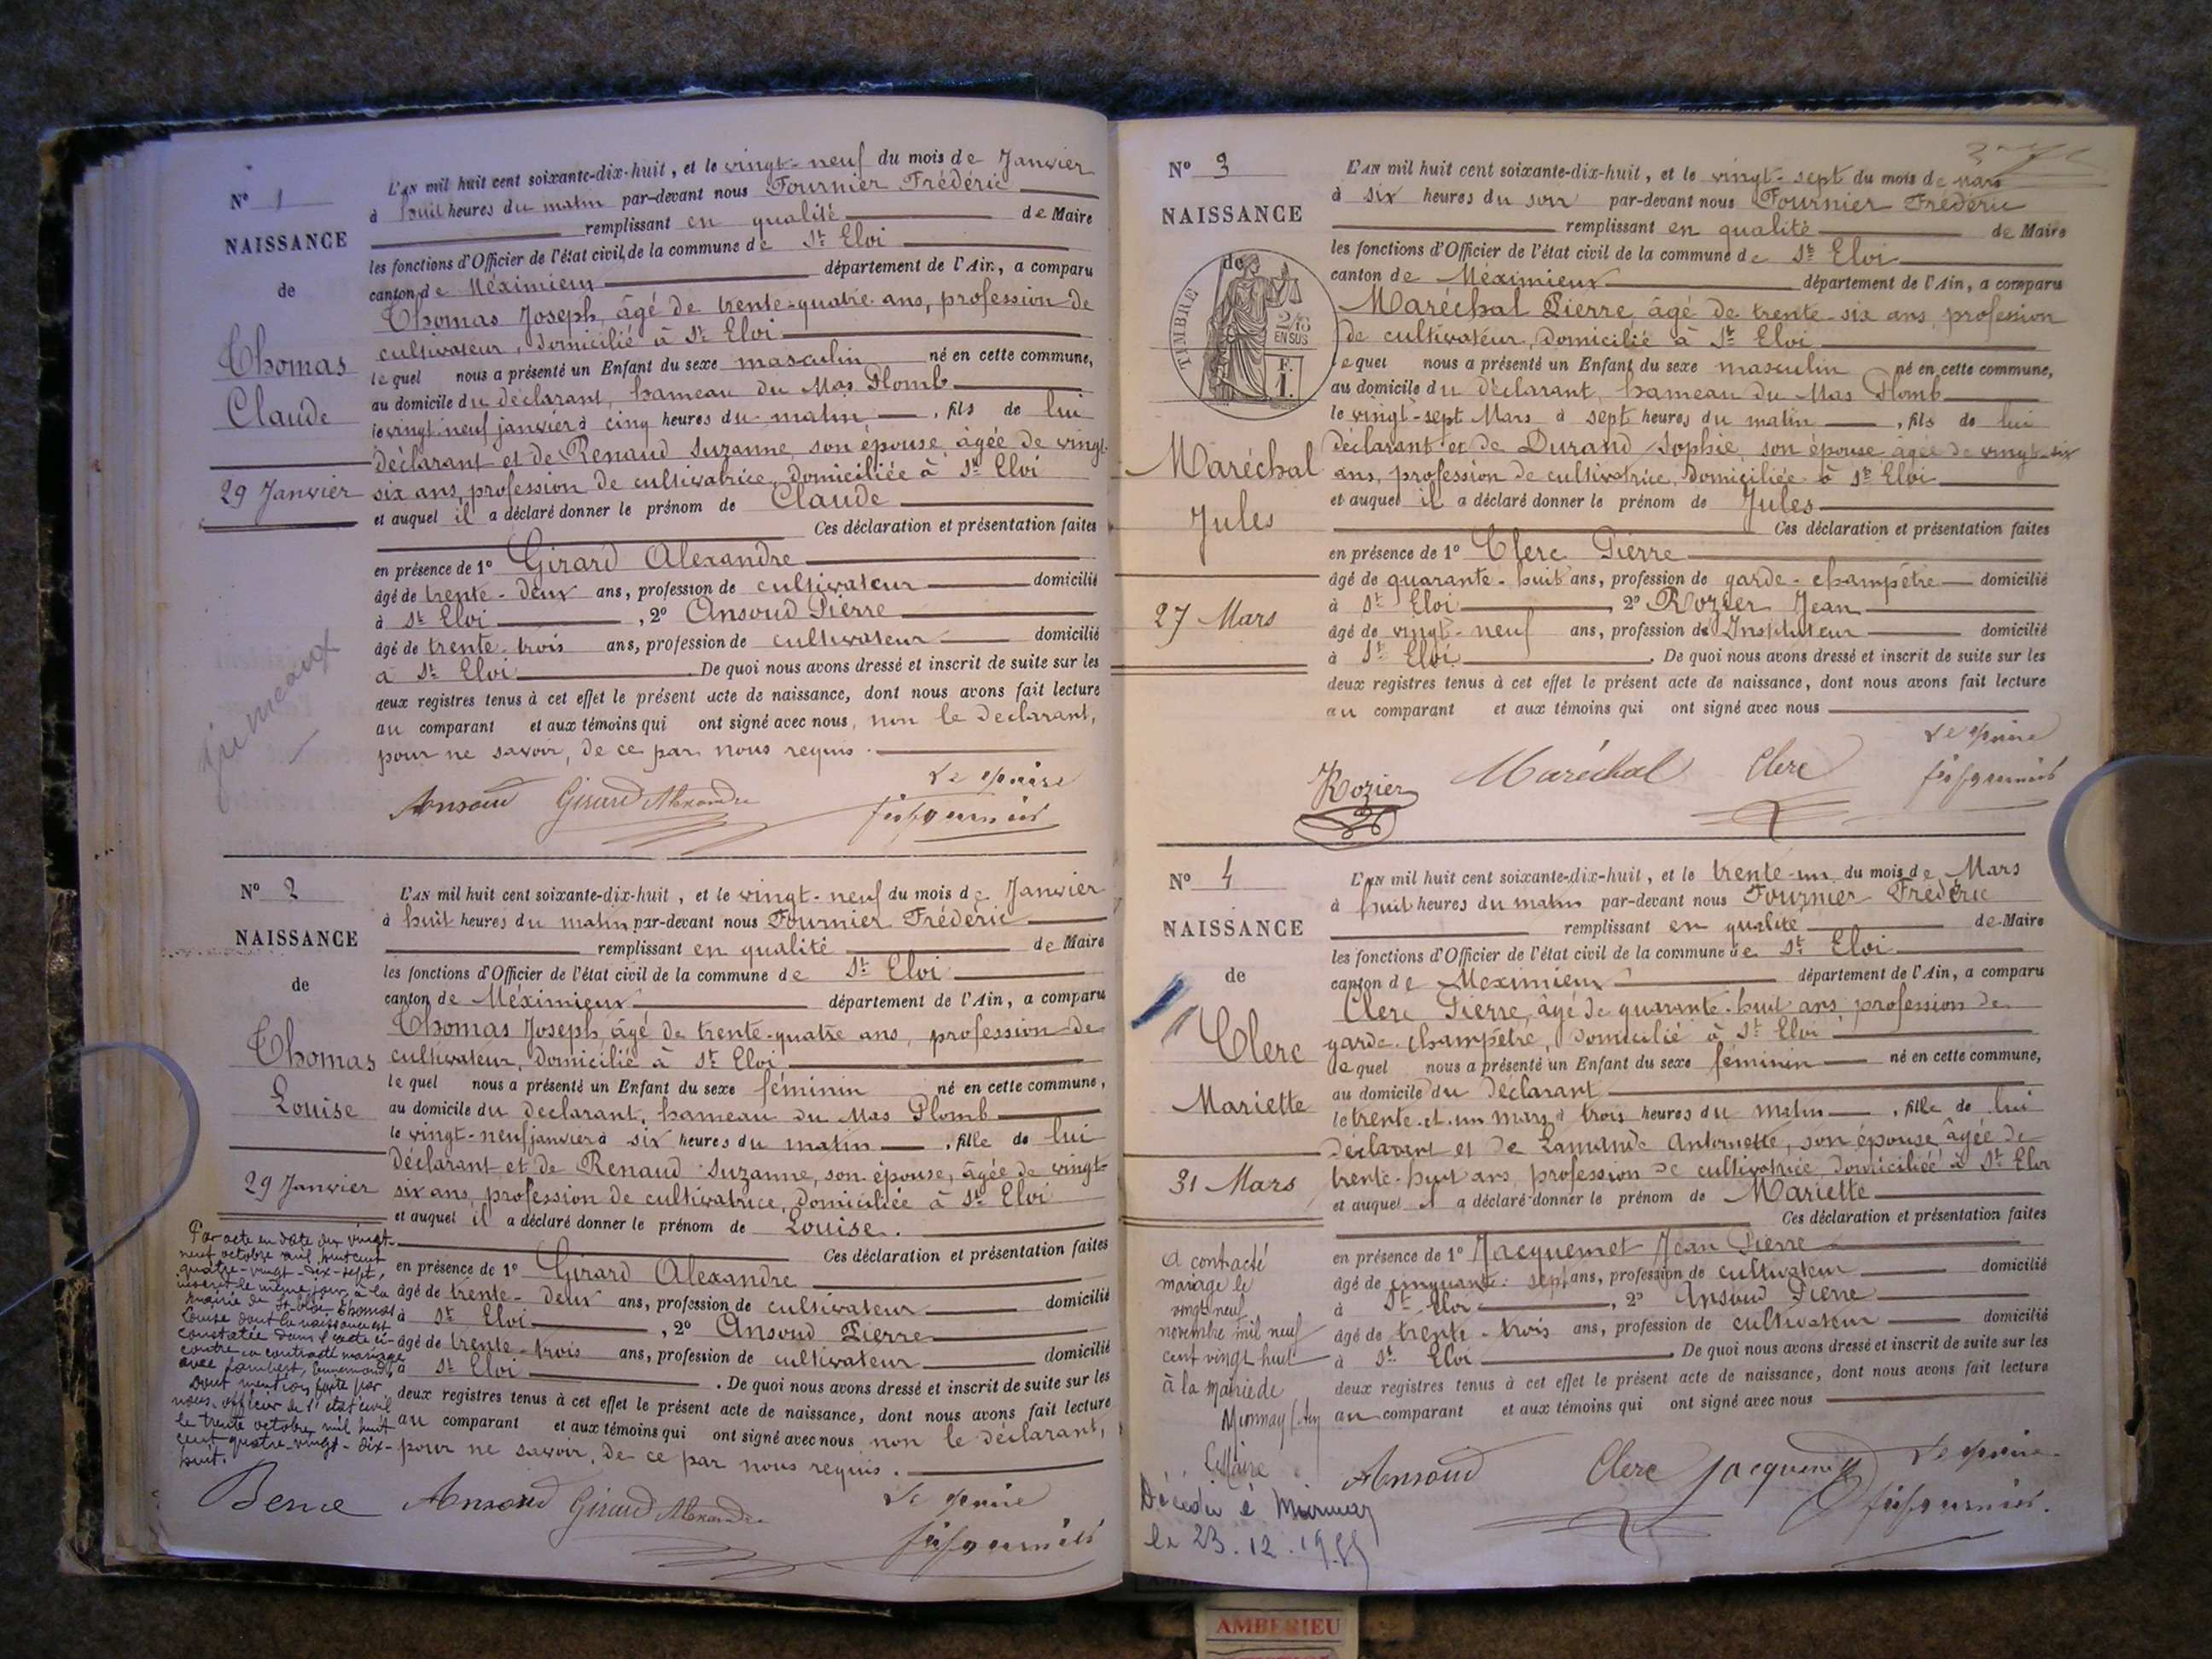 N° 1
NAISSANCE
de
Thomas
Claude
29 Janvier
jumeaux
L'AN mil huit cent soixante-dix-huit, et le vingt-neuf du mois de Janvier
à huit heures du matin par-devant nous Fournier Frédéric
remplissant en qualité de Maire
les fonctions d'Officier de l'état civil de la commune de St Eloi
canton de Méximieux département de l'Ain, a comparu
Thomas Joseph, âgé de trente-quatre ans, profession de
cultivateur, domicilié à St Eloi
lequel nous a présenté un Enfant du sexe masculin né en cette commune,
au domicile du déclarant, hameau du Mas Plomb
le vingt neuf janvier à cinq heures du matin, fils de lui
déclarant et de Renaud Suzanne, son épouse, âgée de vingt-
six ans, profession de cultivatrice, domiciliée à St Eloi
et auquel il a déclaré donner le prénom de Claude
Ces déclaration et présentation faites
en présence de 1° Girard Alexandre
âgé de trente-deux ans, profession de cultivateur domicilié
à St Eloi, 2° Ansoud Pierre
âgé de trente-trois ans, profession de cultivateur domicilié
à St Eloi. De quoi nous avons dressé et inscrit de suite sur les
deux registres tenus à cet effet le présent acte de naissance, dont nous avons fait lecture
au comparant et aux témoins qui ont signé avec nous, non le déclarant,
pour ne savoir, de ce par nous requis.
Ansoud Girard Alexandre Le Maire
N° 2
NAISSANCE
de
Thomas
Louise
29 Janvier
L'AN mil huit cent soixante-dix-huit, et le vingt-neuf du mois de Janvier
à huit heures du matin par-devant nous Fournier Frédéric
remplissant en qualité de Maire
les fonctions d'Officier de l'état civil de la commune de St Eloi
canton de Méximieux département de l'Ain, a comparu
Thomas Joseph, âgé de trente-quatre ans, profession de
cultivateur, domicilié à St Eloi
lequel nous a présenté un Enfant du sexe féminin né en cette commune,
au domicile du déclarant, hameau du Mas Plomb
le vingt-neuf janvier à six heures du matin, fille de lui
déclarant et de Renaud Suzanne, son épouse, âgée de vingt-
six ans, profession de cultivatrice, domiciliée à St Eloi
et auquel il a déclaré donner le prénom de Louise.
Ces déclaration et présentation faites
en présence de 1° Girard Alexandre
âgé de trente-deux ans, profession de cultivateur domicilié
à St Eloi, 2° Ansoud Pierre
âgé de trente-trois ans, profession de cultivateur domicilié
à St Eloi. De quoi nous avons dressé et inscrit de suite sur les
deux registres tenus à cet effet le présent acte de naissance, dont nous avons fait lecture
au comparant et aux témoins qui ont signé avec nous, non le déclarant,
pour ne savoir, de ce par nous requis.
Par acte en date du vingt-
neuf octobre mil huit cent
quatre-vingt-dix-sept,
inscrit le même jour à la
mairie de St Eloi, Thomas
Louise dont la naissance est
constatée dans l'acte ci-
contre a contracté mariage
avec Lambert,
dont mention faite par
nous, officier de l'état civil
le trente octobre mil huit
cent quatre-vingt-dix-
huit.
Ansoud Girard Alexandre Le Maire
N° 3
NAISSANCE
de
TIMBRE
2/10
EN SUS
F.
1.
Maréchal
Jules
27 Mars
L'AN mil huit cent soixante-dix-huit, et le vingt-sept du mois de mars
à six heures du soir par-devant nous Fournier Frédéric
remplissant en qualité de Maire
les fonctions d'Officier de l'état civil de la commune de St Eloi
canton de Méximieux département de l'Ain, a comparu
Maréchal Pierre, âgé de trente-six ans, profession
de cultivateur, domicilié à St Eloi
lequel nous a présenté un Enfant du sexe masculin né en cette commune,
au domicile du déclarant, hameau du Mas Plomb
le vingt-sept Mars à sept heures du matin, fils de lui
déclarant et de Durand Sophie, son épouse âgée de vingt-six
ans, profession de cultivatrice, domiciliée à St Eloi
et auquel il a déclaré donner le prénom de Jules
Ces déclaration et présentation faites
en présence de 1° Clerc Pierre
âgé de quarante-huit ans, profession de garde-champêtre domicilié
à St Eloi, 2° Rozier Jean
âgé de vingt-neuf ans, profession de Instituteur domicilié
à St Eloi. De quoi nous avons dressé et inscrit de suite sur les
deux registres tenus à cet effet le présent acte de naissance, dont nous avons fait lecture
au comparant et aux témoins qui ont signé avec nous
Rozier Maréchal Clerc Le Maire
N° 4
NAISSANCE
de
Clerc
Mariette
31 Mars
L'AN mil huit cent soixante-dix-huit, et le trente-un du mois de Mars
à huit heures du matin par-devant nous Fournier Frédéric
remplissant en qualité de Maire
les fonctions d'Officier de l'état civil de la commune de St Eloi
canton de Meximieux département de l'Ain, a comparu
Clerc Pierre, âgé de quarante-huit ans, profession de
garde-champêtre, domicilié à St Eloi
lequel nous a présenté un Enfant du sexe féminin né en cette commune,
au domicile du déclarant
le trente-et-un mars à trois heures du matin, fille de lui
déclarant et de Lamande Antoinette, son épouse, âgée de
trente-huit ans, profession de cultivatrice, domiciliée à St Eloi
et auquel il a déclaré donner le prénom de Mariette
Ces déclaration et présentation faites
en présence de 1° Jacquemet Jean Pierre
âgé de cinquante-sept ans, profession de cultivateur domicilié
à St Eloi, 2° Ansoud Pierre
âgé de trente-trois ans, profession de cultivateur domicilié
à St Eloi. De quoi nous avons dressé et inscrit de suite sur les
deux registres tenus à cet effet le présent acte de naissance, dont nous avons fait lecture
au comparant et aux témoins qui ont signé avec nous
A contracté
mariage le
vingt neuf
novembre mil neuf
cent vingt huit
à la Mairie de
Mionnay (Ain
Le Maire
Décédée à Mionnay
le 23.12.19
Ansoud Clerc Jacquemet Le Maire
AMBERIEU